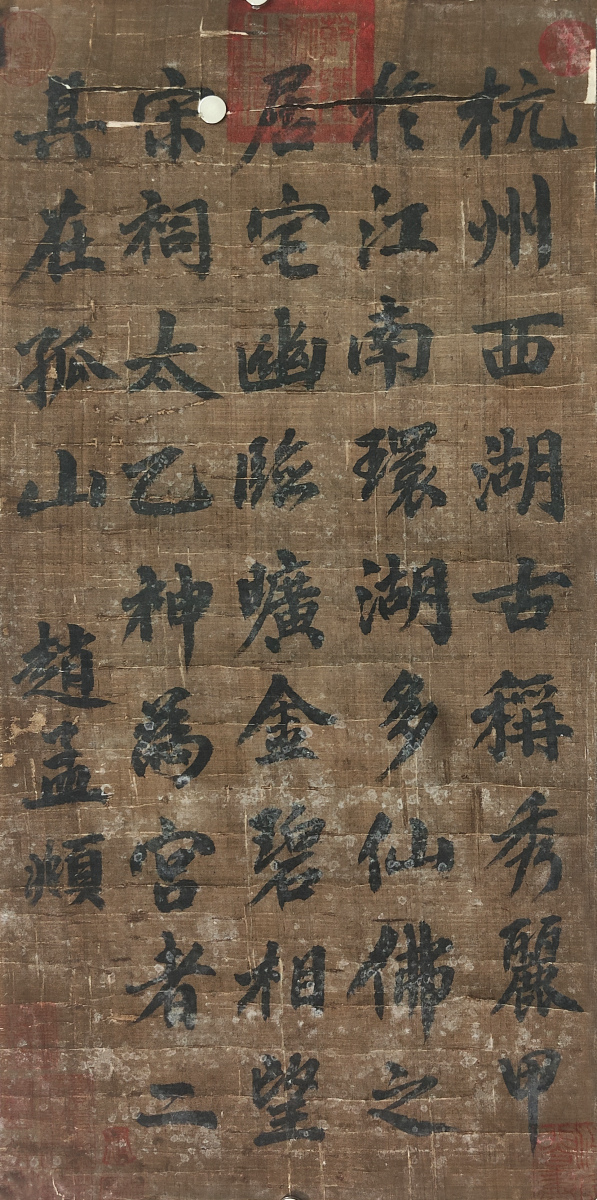 杭州西湖古稱秀麗甲
於江南環湖多仙佛之
居宅幽臨曠金碧相望
宋祠太乙神為宮者二
其在孤山
趙孟頫